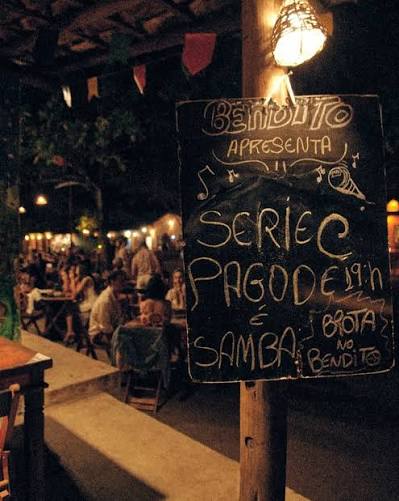 BENDITO
APRESENTA
SERIEC
PAGODE 19:h
É
SAMBA
BROTA
NO
BENDITO